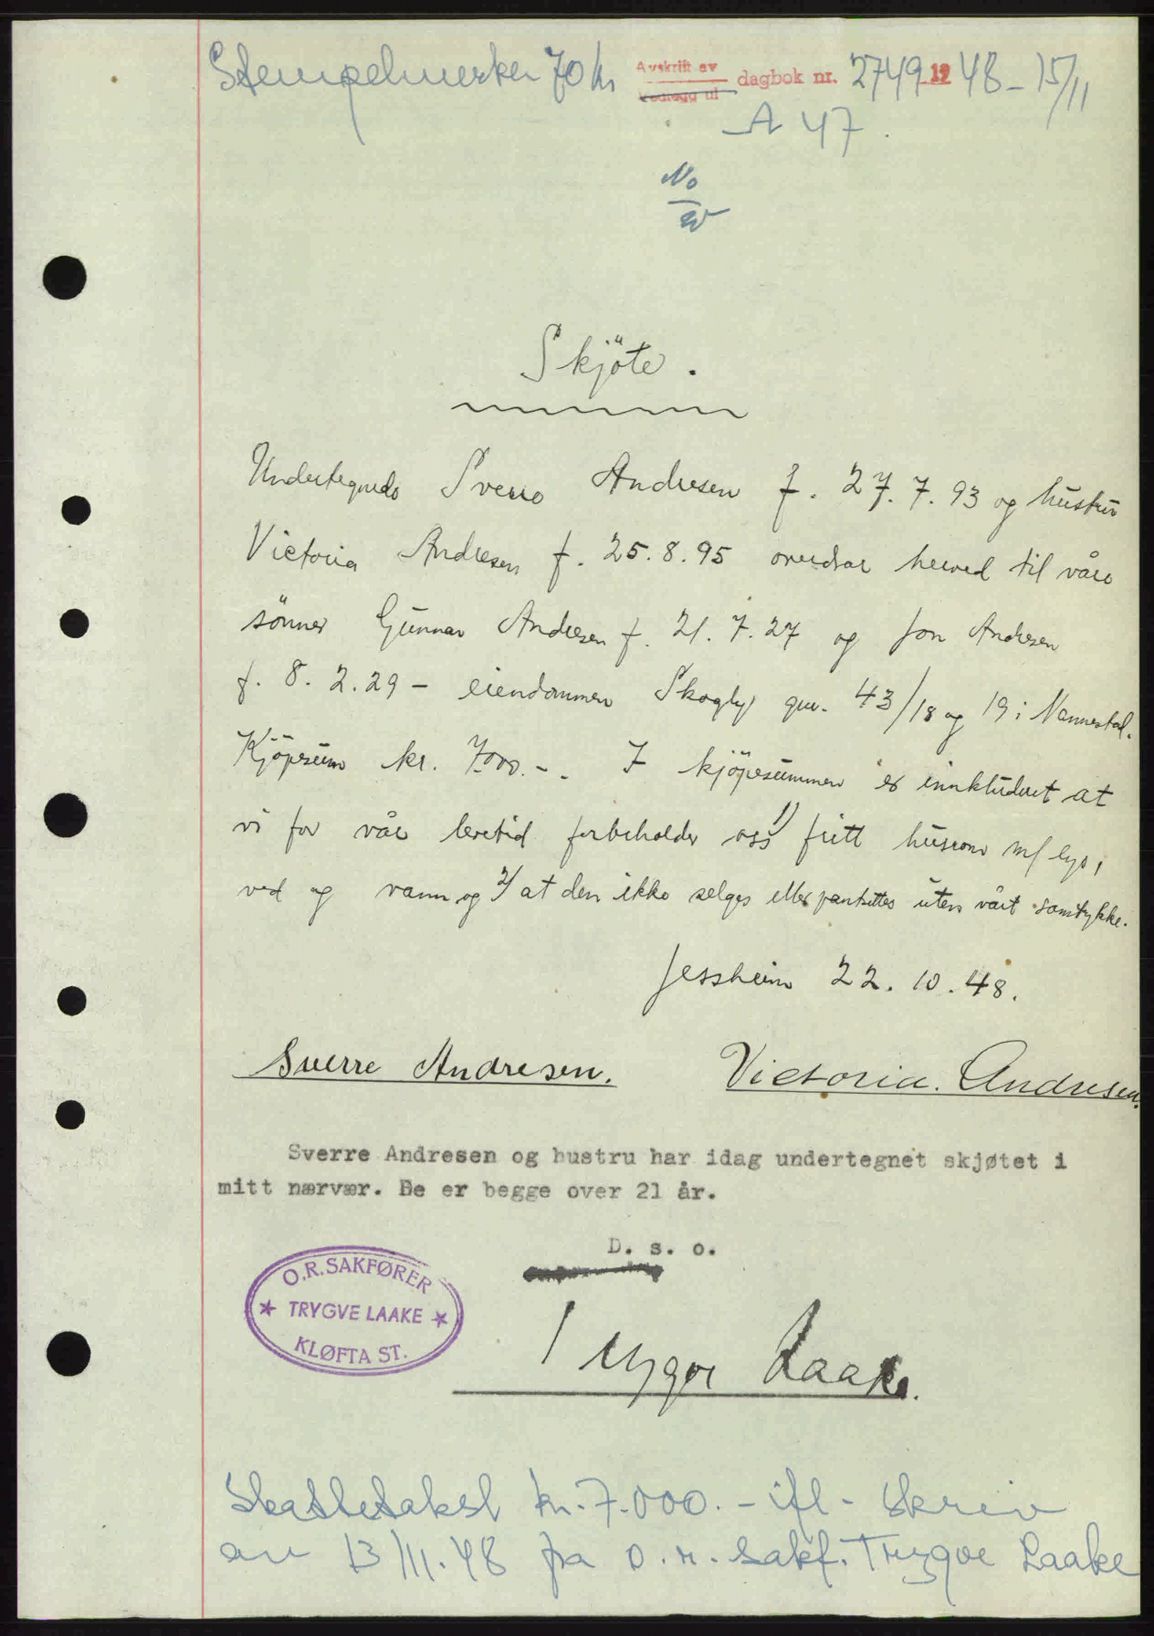 Stempelmerker 70 kr Avskrift av dagbok nr. 2749 19 48 - 15/11
Vedlegg til
A 47.
No
Skjöte.
Undertegnede Sverre Andresen f. 27.7.93 og hustru
Victoria Andresen f. 25.8.95 overdrar herved til våre
sönner Gunnar Andresen f. 21.7.27 og Jon Andresen
f. 8.2.29 - eiendommen Skogly gnr. 43/18 og 19 i Nannestad.
Kjöpesum kr. 7.000.-. I kjöpesummen er innkludert at
vi for vår levetid forbeholder oss 1) fritt husrom m/ lys,
ved og vann og 2) at den ikke selges eller pantsettes uten vårt samtykke.
Jessheim 22.10.48.
Sverre Andresen. Victoria. Andresen.
Sverre Andresen og hustru har idag undertegnet skjøtet i
mitt nærvær. De er begge over 21 år.
D. s. o.
O.R. SAKFØRER
* TRYGVE LAAKE *
KLØFTA ST.
Trygve Laake.
Skattetakst kr. 7.000.- ifl. skriv
av 13/11.48 fra o.r. sakf. Trygve Laake